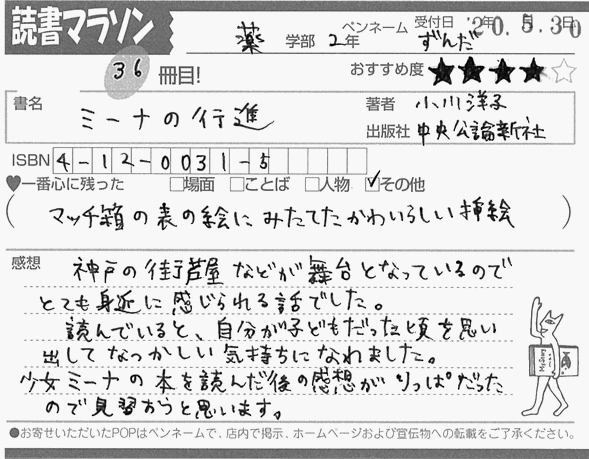 読書マラソン
薬 学部 2年 ペンネーム ずんだ 受付日 '20.5.30
36 冊目! おすすめ度 ★★★★☆
書名 ミーナの行進
著者 小川洋子
出版社 中央公論新社
ISBN 4-12-0031-5
♥一番心に残った □場面 □ことば □人物 ☑その他
(マッチ箱の表の絵にみたてたかわいらしい挿絵)
感想 神戸の街芦屋などが舞台となっているので
とても身近に感じられる話でした。
読んでいると、自分が子どもだった頃を思い
出してなつかしい気持ちになれました。
少女ミーナの本を読んだ後の感想がりっぱだった
ので見習おうと思います。
●お寄せいただいたPOPはペンネームで、店内で掲示、ホームページおよび宣伝物への転載をご了承ください。